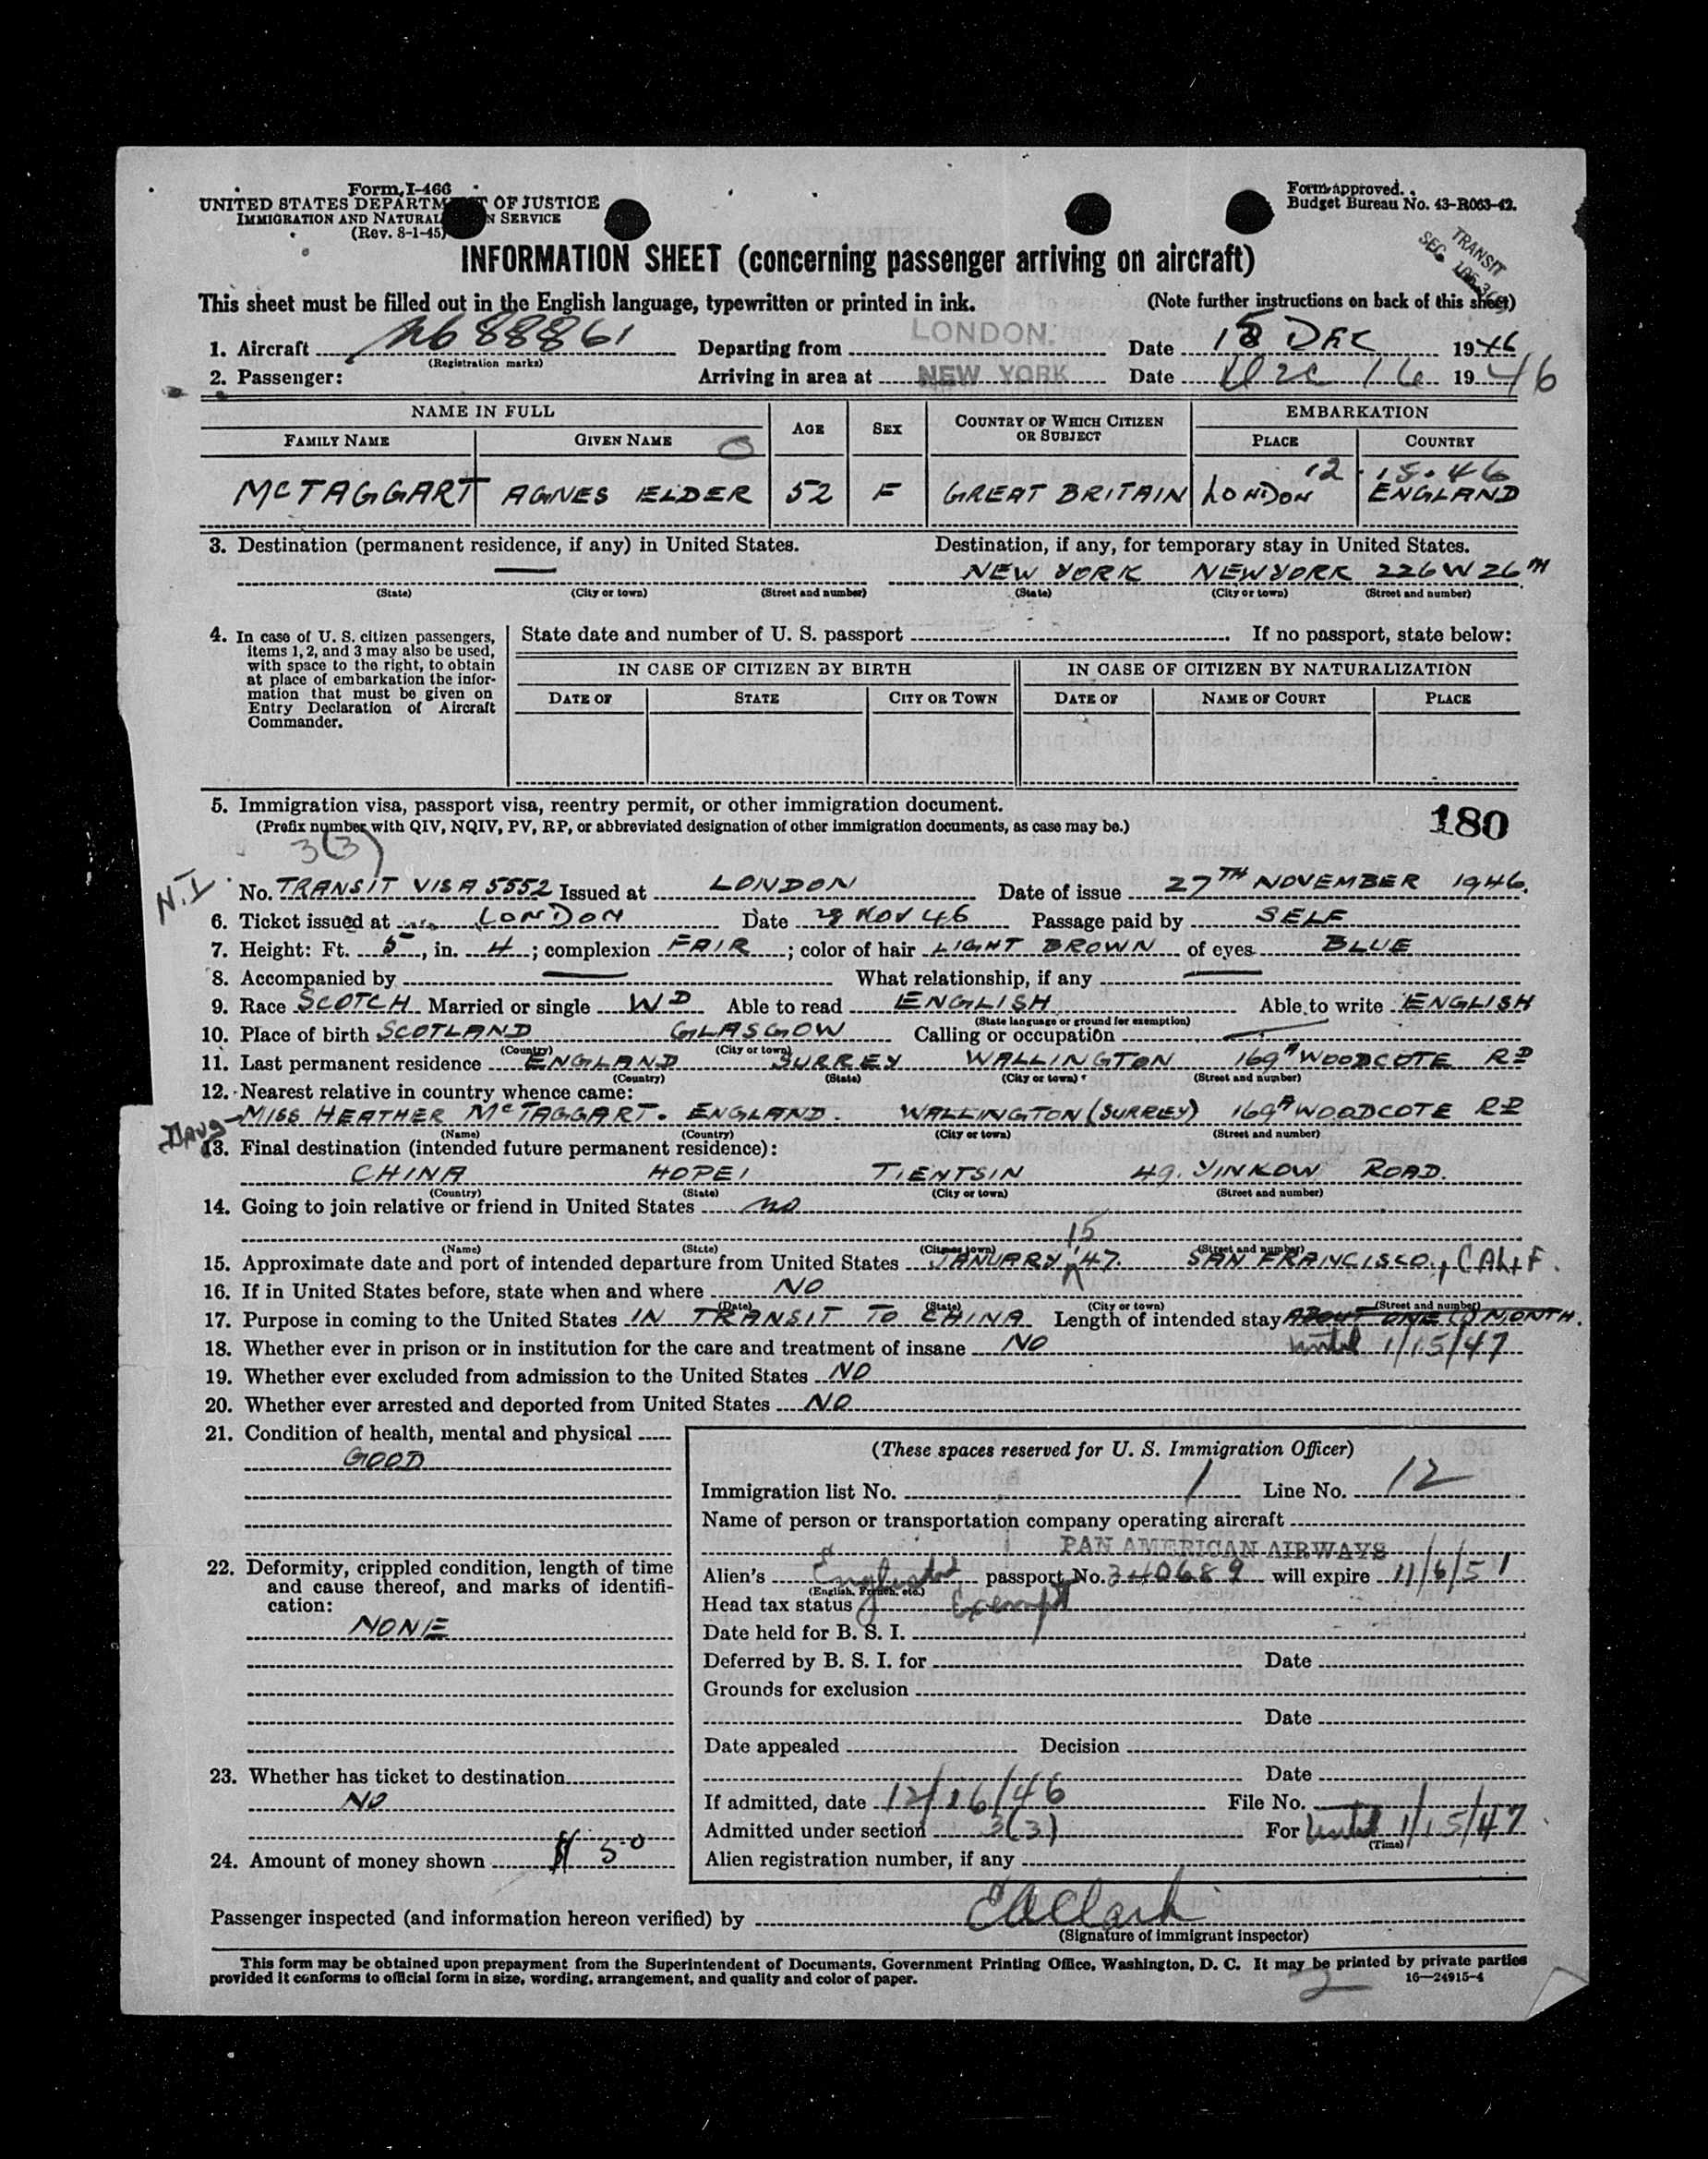 Form I-466
UNITED STATES DEPARTMENT OF JUSTICE
IMMIGRATION AND NATURALIZATION SERVICE
(Rev. 8-1-45)
Form approved.
Budget Bureau No. 43-R063-42.
TRANSIT
SEC.
INFORMATION SHEET (concerning passenger arriving on aircraft)
This sheet must be filled out in the English language, typewritten or printed in ink. (Note further instructions on back of this sheet)
1. Aircraft 88861 Departing from LONDON. Date 15 DEC 1946
(Registration marks)
2. Passenger: Arriving in area at NEW YORK Date Dec 16 1946
NAME IN FULL AGE SEX COUNTRY OF WHICH CITIZEN OR SUBJECT EMBARKATION
FAMILY NAME GIVEN NAME PLACE COUNTRY
12.15.46
McTAGGART AGNES ELDER 52 F GREAT BRITAIN LONDON ENGLAND
3. Destination (permanent residence, if any) in United States. Destination, if any, for temporary stay in United States.
— NEW YORK NEW YORK 226 W 26TH
(State) (City or town) (Street and number) (State) (City or town) (Street and number)
4. In case of U. S. citizen passengers, items 1, 2, and 3 may also be used, with space to the right, to obtain at place of embarkation the information that must be given on Entry Declaration of Aircraft Commander.
State date and number of U. S. passport If no passport, state below:
IN CASE OF CITIZEN BY BIRTH IN CASE OF CITIZEN BY NATURALIZATION
DATE OF STATE CITY OR TOWN DATE OF NAME OF COURT PLACE
5. Immigration visa, passport visa, reentry permit, or other immigration document. 180
(Prefix number with QIV, NQIV, PV, RP, or abbreviated designation of other immigration documents, as case may be.)
3(3)
N.I.
No. TRANSIT VISA 5552 Issued at LONDON Date of issue 27TH NOVEMBER 1946.
6. Ticket issued at LONDON Date 29 NOV 46 Passage paid by SELF
7. Height: Ft. 5, in. 4; complexion FAIR; color of hair LIGHT BROWN of eyes BLUE
8. Accompanied by — What relationship, if any —
9. Race SCOTCH Married or single WD Able to read ENGLISH Able to write ENGLISH
(State language or ground for exemption)
10. Place of birth SCOTLAND GLASGOW Calling or occupation —
(Country) (City or town)
11. Last permanent residence ENGLAND SURREY WALLINGTON 169A WOODCOTE RD
(Country) (State) (City or town) (Street and number)
12. Nearest relative in country whence came:
Daug MISS HEATHER McTAGGART. ENGLAND. WALLINGTON (SURREY) 169A WOODCOTE RD
(Name) (Country) (City or town) (Street and number)
13. Final destination (intended future permanent residence):
CHINA HOPEI TIENTSIN 49. YINKOW ROAD.
(Country) (State) (City or town) (Street and number)
14. Going to join relative or friend in United States no
(Name) (State) (City or town) (Street and number)
15
15. Approximate date and port of intended departure from United States JANUARY '47. SAN FRANCISCO., CALIF.
16. If in United States before, state when and where NO
(Date) (State) (City or town) (Street and number)
17. Purpose in coming to the United States IN TRANSIT TO CHINA Length of intended stay ABOUT ONE (1) MONTH.
18. Whether ever in prison or in institution for the care and treatment of insane NO until 1/15/47
19. Whether ever excluded from admission to the United States NO
20. Whether ever arrested and deported from United States NO
21. Condition of health, mental and physical
GOOD
22. Deformity, crippled condition, length of time and cause thereof, and marks of identification:
NONE
23. Whether has ticket to destination
NO
24. Amount of money shown $ 50
(These spaces reserved for U. S. Immigration Officer)
Immigration list No. 1 Line No. 12
Name of person or transportation company operating aircraft
PAN AMERICAN AIRWAYS
Alien's passport No. 340689 will expire 11/6/51
(English, French, etc.)
Head tax status Exempt
Date held for B. S. I.
Deferred by B. S. I. for Date
Grounds for exclusion
Date
Date appealed Decision
Date
If admitted, date 12/16/46 File No.
Admitted under section 3(3) For Until 1/15/47
(Time)
Alien registration number, if any
Passenger inspected (and information hereon verified) by EAClark
(Signature of immigrant inspector)
This form may be obtained upon prepayment from the Superintendent of Documents, Government Printing Office, Washington, D. C. It may be printed by private parties
provided it conforms to official form in size, wording, arrangement, and quality and color of paper. 16—24915-4
2